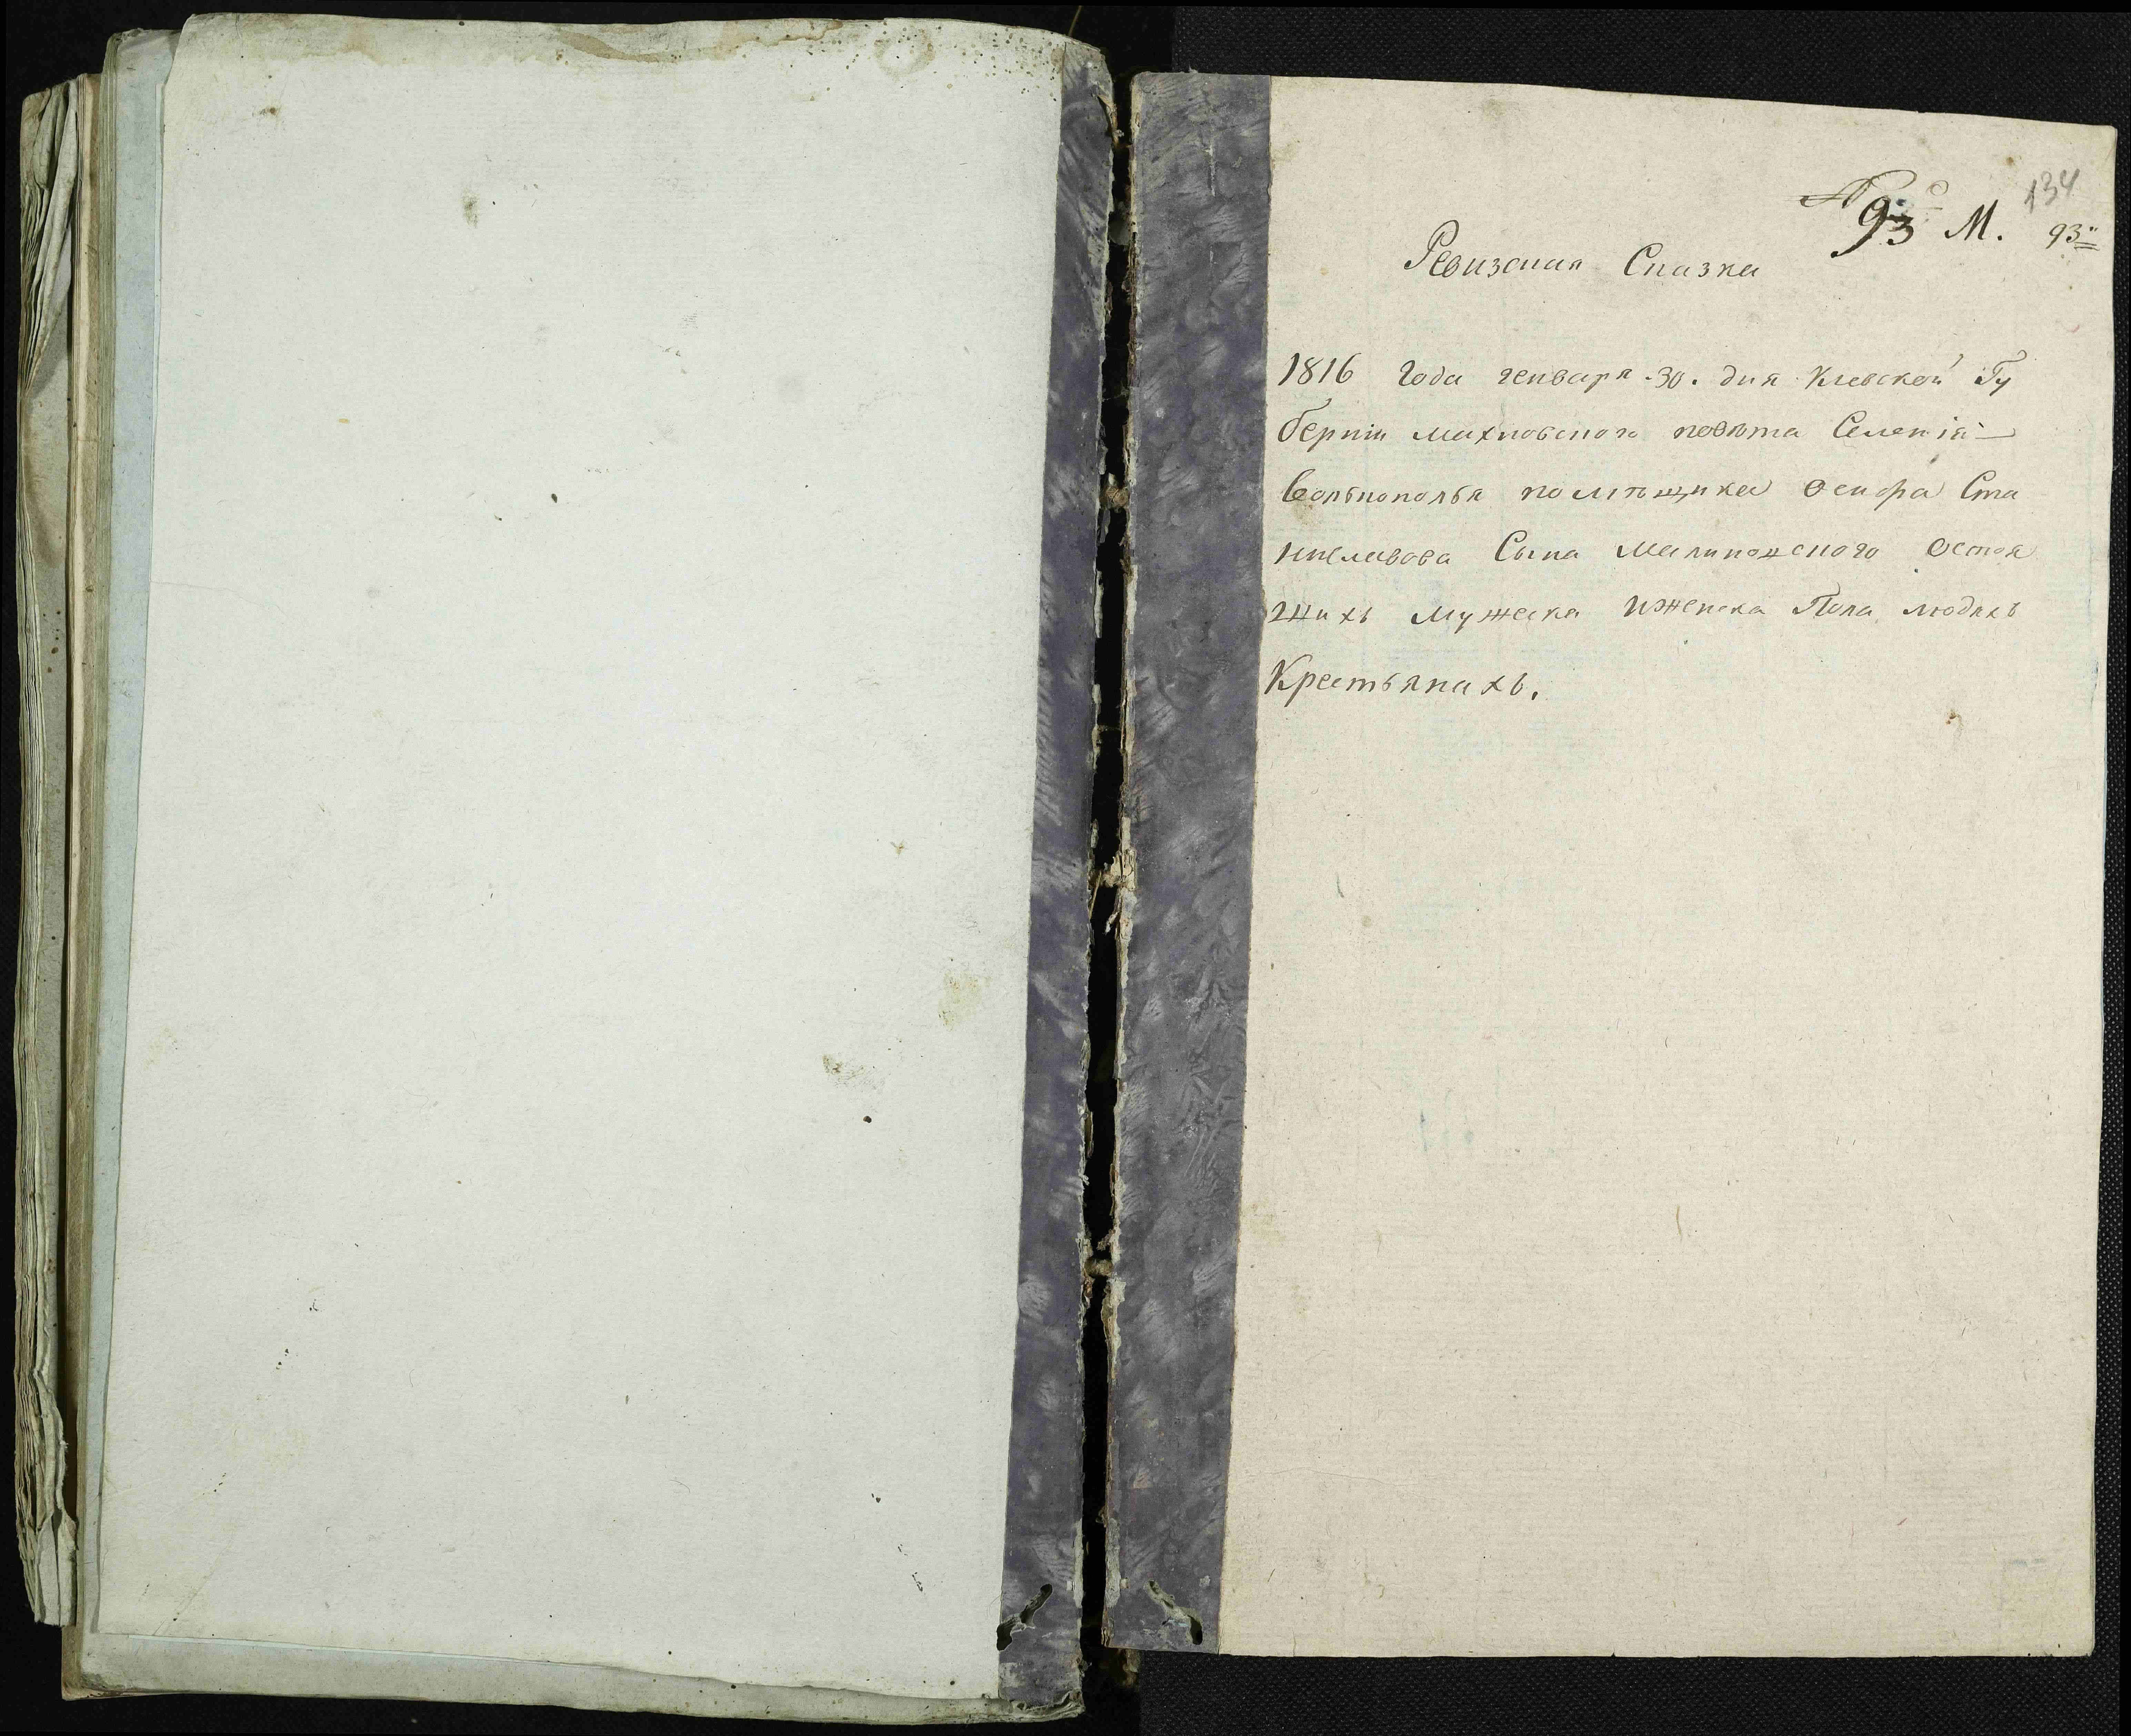 134
№ 93 М. 93
Ревизская Сказка
1816 года генваря 30. дня Киевской Гу
берніи махновского повѣта Селенія
Вольнополья помѣщика Осипа Ста
ниславова Сына Малиновского Остоя
щихъ мужеска иженска Пола людяхъ
Крестьянахъ.